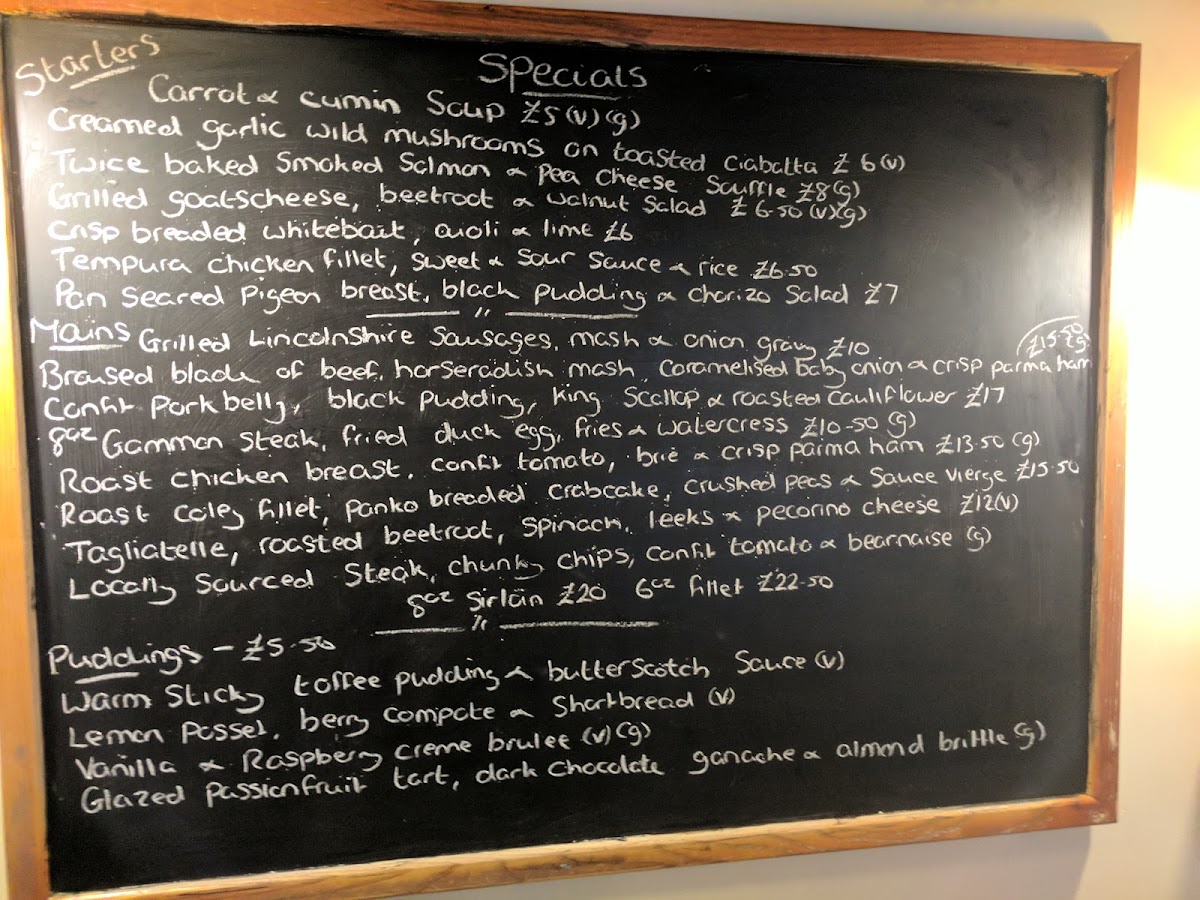 Starters
Specials
Carrot & cumin Soup £5 (v) (g)
Creamed garlic wild mushrooms on toasted ciabatta £6 (v)
Twice baked Smoked Salmon & pea cheese Souffle £8 (g)
Grilled goatscheese, beetroot & walnut Salad £6.50 (v)(g)
Crisp breaded whitebait, aioli & lime £6
Tempura chicken fillet, sweet & sour sauce & rice £6.50
Pan Seared Pigeon breast, black pudding & chorizo Salad £7
Mains
Grilled Lincolnshire Sausages, mash & onion gravy £10
Braised blade of beef, horseradish mash, caramelised baby onion & crisp parma ham £15.50 (g)
Confit Pork belly, black pudding, King Scallop & roasted cauliflower £17
8oz Gammon Steak, fried duck egg, fries & watercress £10-50 (g)
Roast chicken breast, confit tomato, brie & crisp parma ham £13.50 (g)
Roast coley fillet, panko breaded crabcake, crushed peas & Sauce vierge £15.50
Tagliatelle, roasted beetroot, spinach, leeks & pecorino cheese £12 (v)
Locally Sourced Steak, chunky chips, confit tomato & bearnaise (g)
8oz Sirloin £20 6oz fillet £22-50
Puddings - £5.50
Warm Sticky toffee pudding & butterscotch Sauce (v)
Lemon Posset, berry compote & Shortbread (v)
Vanilla & Raspberry creme brulee (v) (g)
Glazed passionfruit tart, dark chocolate ganache & almond brittle (g)